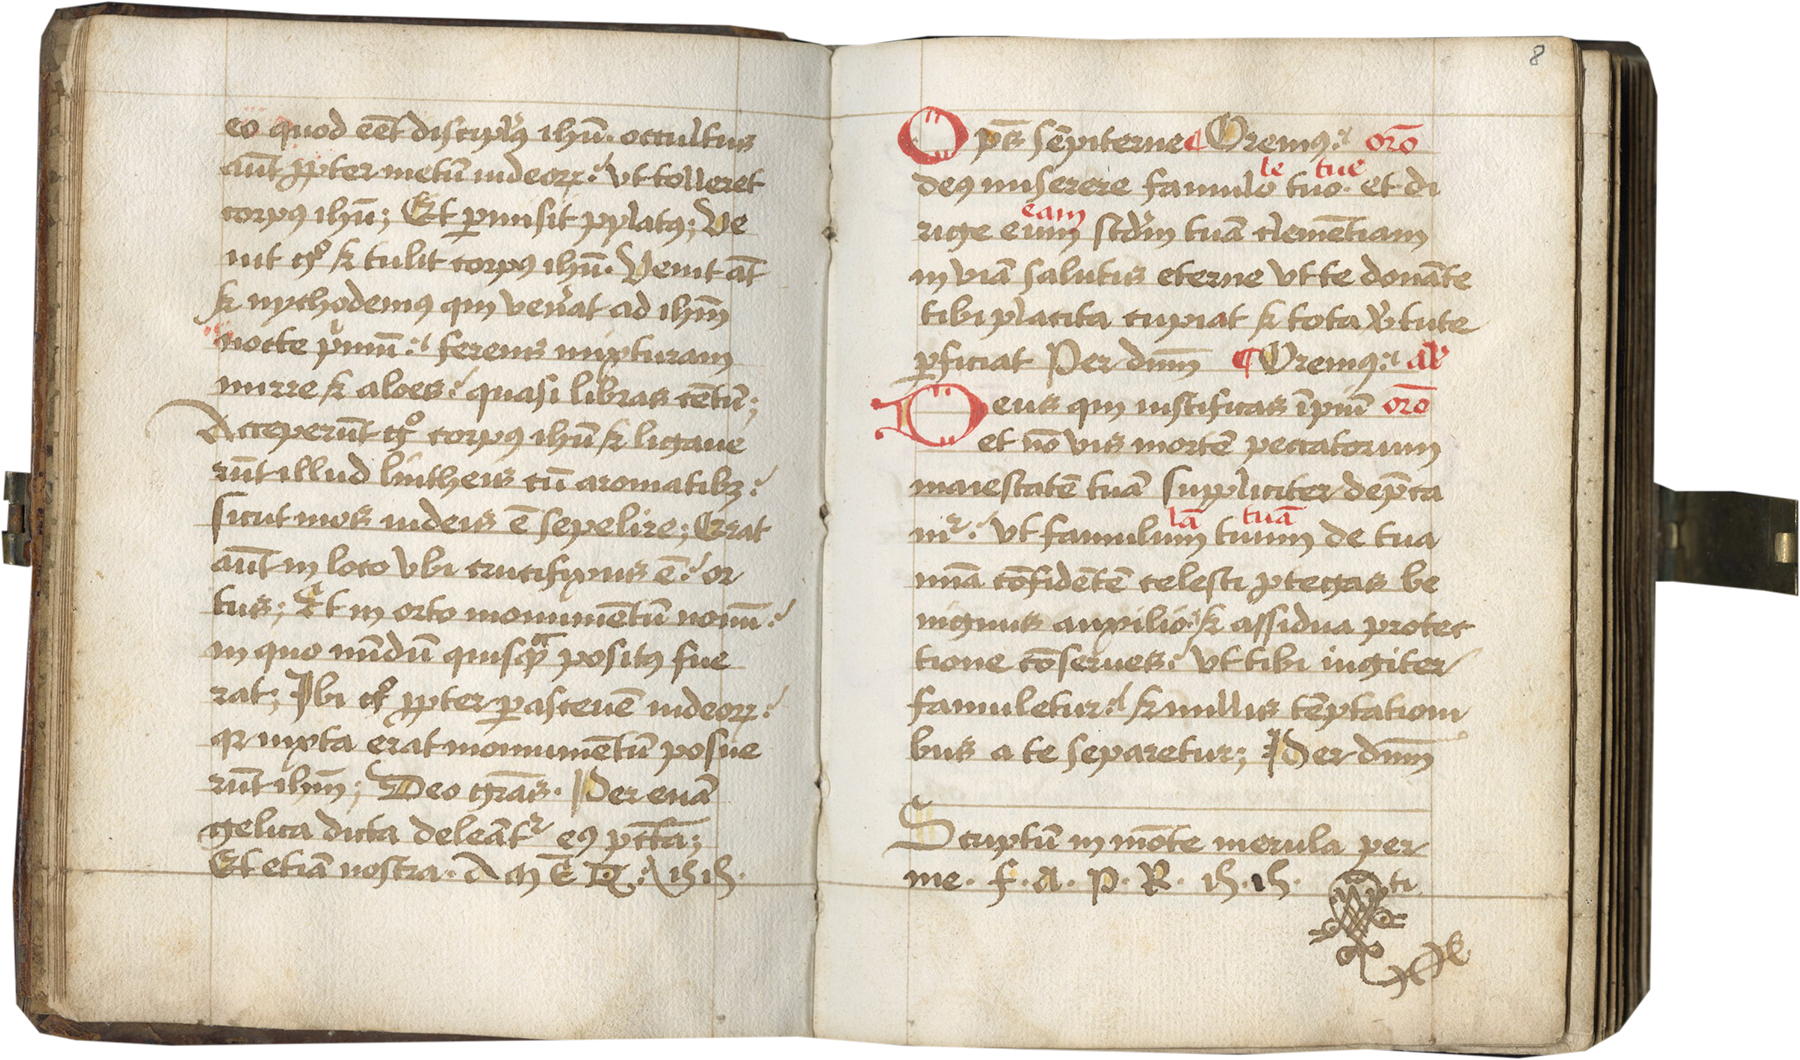 eo quod eēt discipl̓s ihū. occultus
aūt ꝓpter metū iudeoꝝ: vt tolleret
corpꝰ ihū; Et ꝑmisit pylatꝰ; Ve
nit gͦ & tulit corpꝰ ihū. Venit āt
& nychodemꝰ qui ven̓at ad ihm̄
nocte p̓mū: ferens mixturam
mirre & aloes: quasi libras cētū;
Acceperūt gͦ corpꝰ ihū & ligaue
rūt illud lintheis cū aromatibꝫ:
sicut mos iudeis ē sepelire; Erat
aūt in loco vbi crucifixus ē: or
tus; Et in orto monumētū nouū:
in quo nūdū quisqᷓ positꝰ fue
rat; Ibi gͦ ꝓpter ꝑasceuē iudeoꝝ:
qꝛ iuxta erat monumētū posue
rūt ihm̄; Deo grās. Per euā
gelica dicta deleāt᷑ eꝰ pctā;
Et etiā nostra. A M E N: ih ih.
8
Ops̄ sēpiterne ¶ Oremꝰ: orō
le tue
deꝰ miserere famulo tuo. et di
eam
rige eum scd̓m tuā clemētiam
in viā salutis eterne vt te donāte
tibi placita cupiat & tota v̓tute
ꝑficiat Per dnm̄ ¶ Oremꝰ: al̓
Deus qui iustificas īpiū orō
et nō vis mortē peccatorum
maiestatē tuā suppliciter dep̄ca
lā tuā
mr᷑: vt famulum tuum de tua
mīa cōfidētē celesti ꝓtegas be
nignus auxilio: & assidua protec
tione cōserues: vt tibi iugiter
famuletur: & nullis tēptationi
bus a te separetur; Per dnm̄
Scriptū in mōte merula per
me. f. A. P. R. ih. ih.